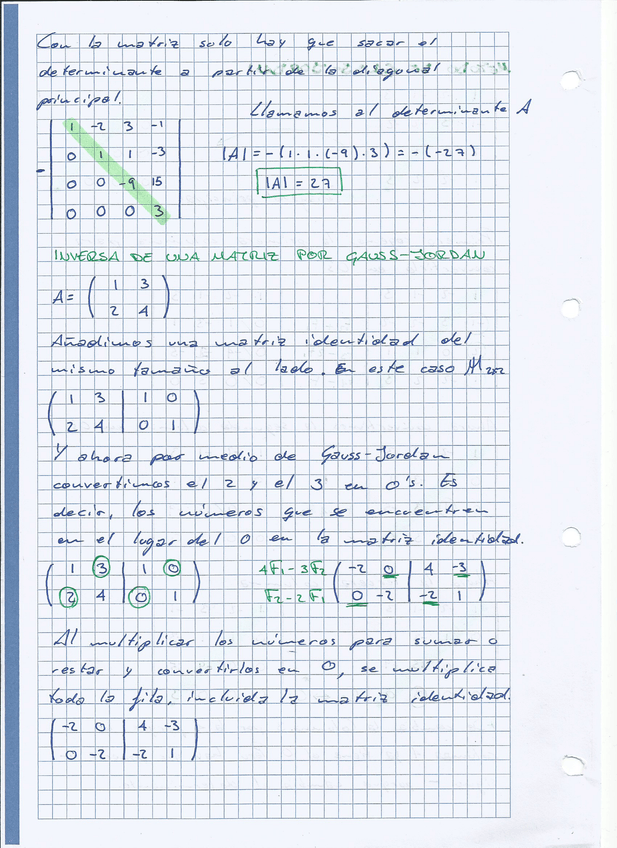 Con la matriz solo hay que sacar el
determinante a partir de la diagonal
principal.
Llamamos al determinante A
1 -2 3 -1
0 1 1 -3
- 0 0 -9 15
0 0 0 3
|A| = -(1·1·(-9)·3) = -(-27)
|A| = 27
INVERSA DE UNA MATRIZ POR GAUSS-JORDAN
A = ( 1 3
2 4 )
Añadimos una matriz identidad del
mismo tamaño al lado. En este caso M2x2
( 1 3 | 1 0
2 4 | 0 1 )
Y ahora por medio de Gauss-Jordan
convertimos el 2 y el 3 en 0's. Es
decir, los números que se encuentren
en el lugar del 0 en la matriz identidad.
( 1 3 | 1 0 4F1-3F2 ( -2 0 | 4 -3
2 4 | 0 1 ) F2-2F1 0 -2 | -2 1 )
Al multiplicar los números para sumar o
restar y convertirlos en 0, se multiplica
toda la fila, incluida la matriz identidad.
( -2 0 | 4 -3
0 -2 | -2 1 )